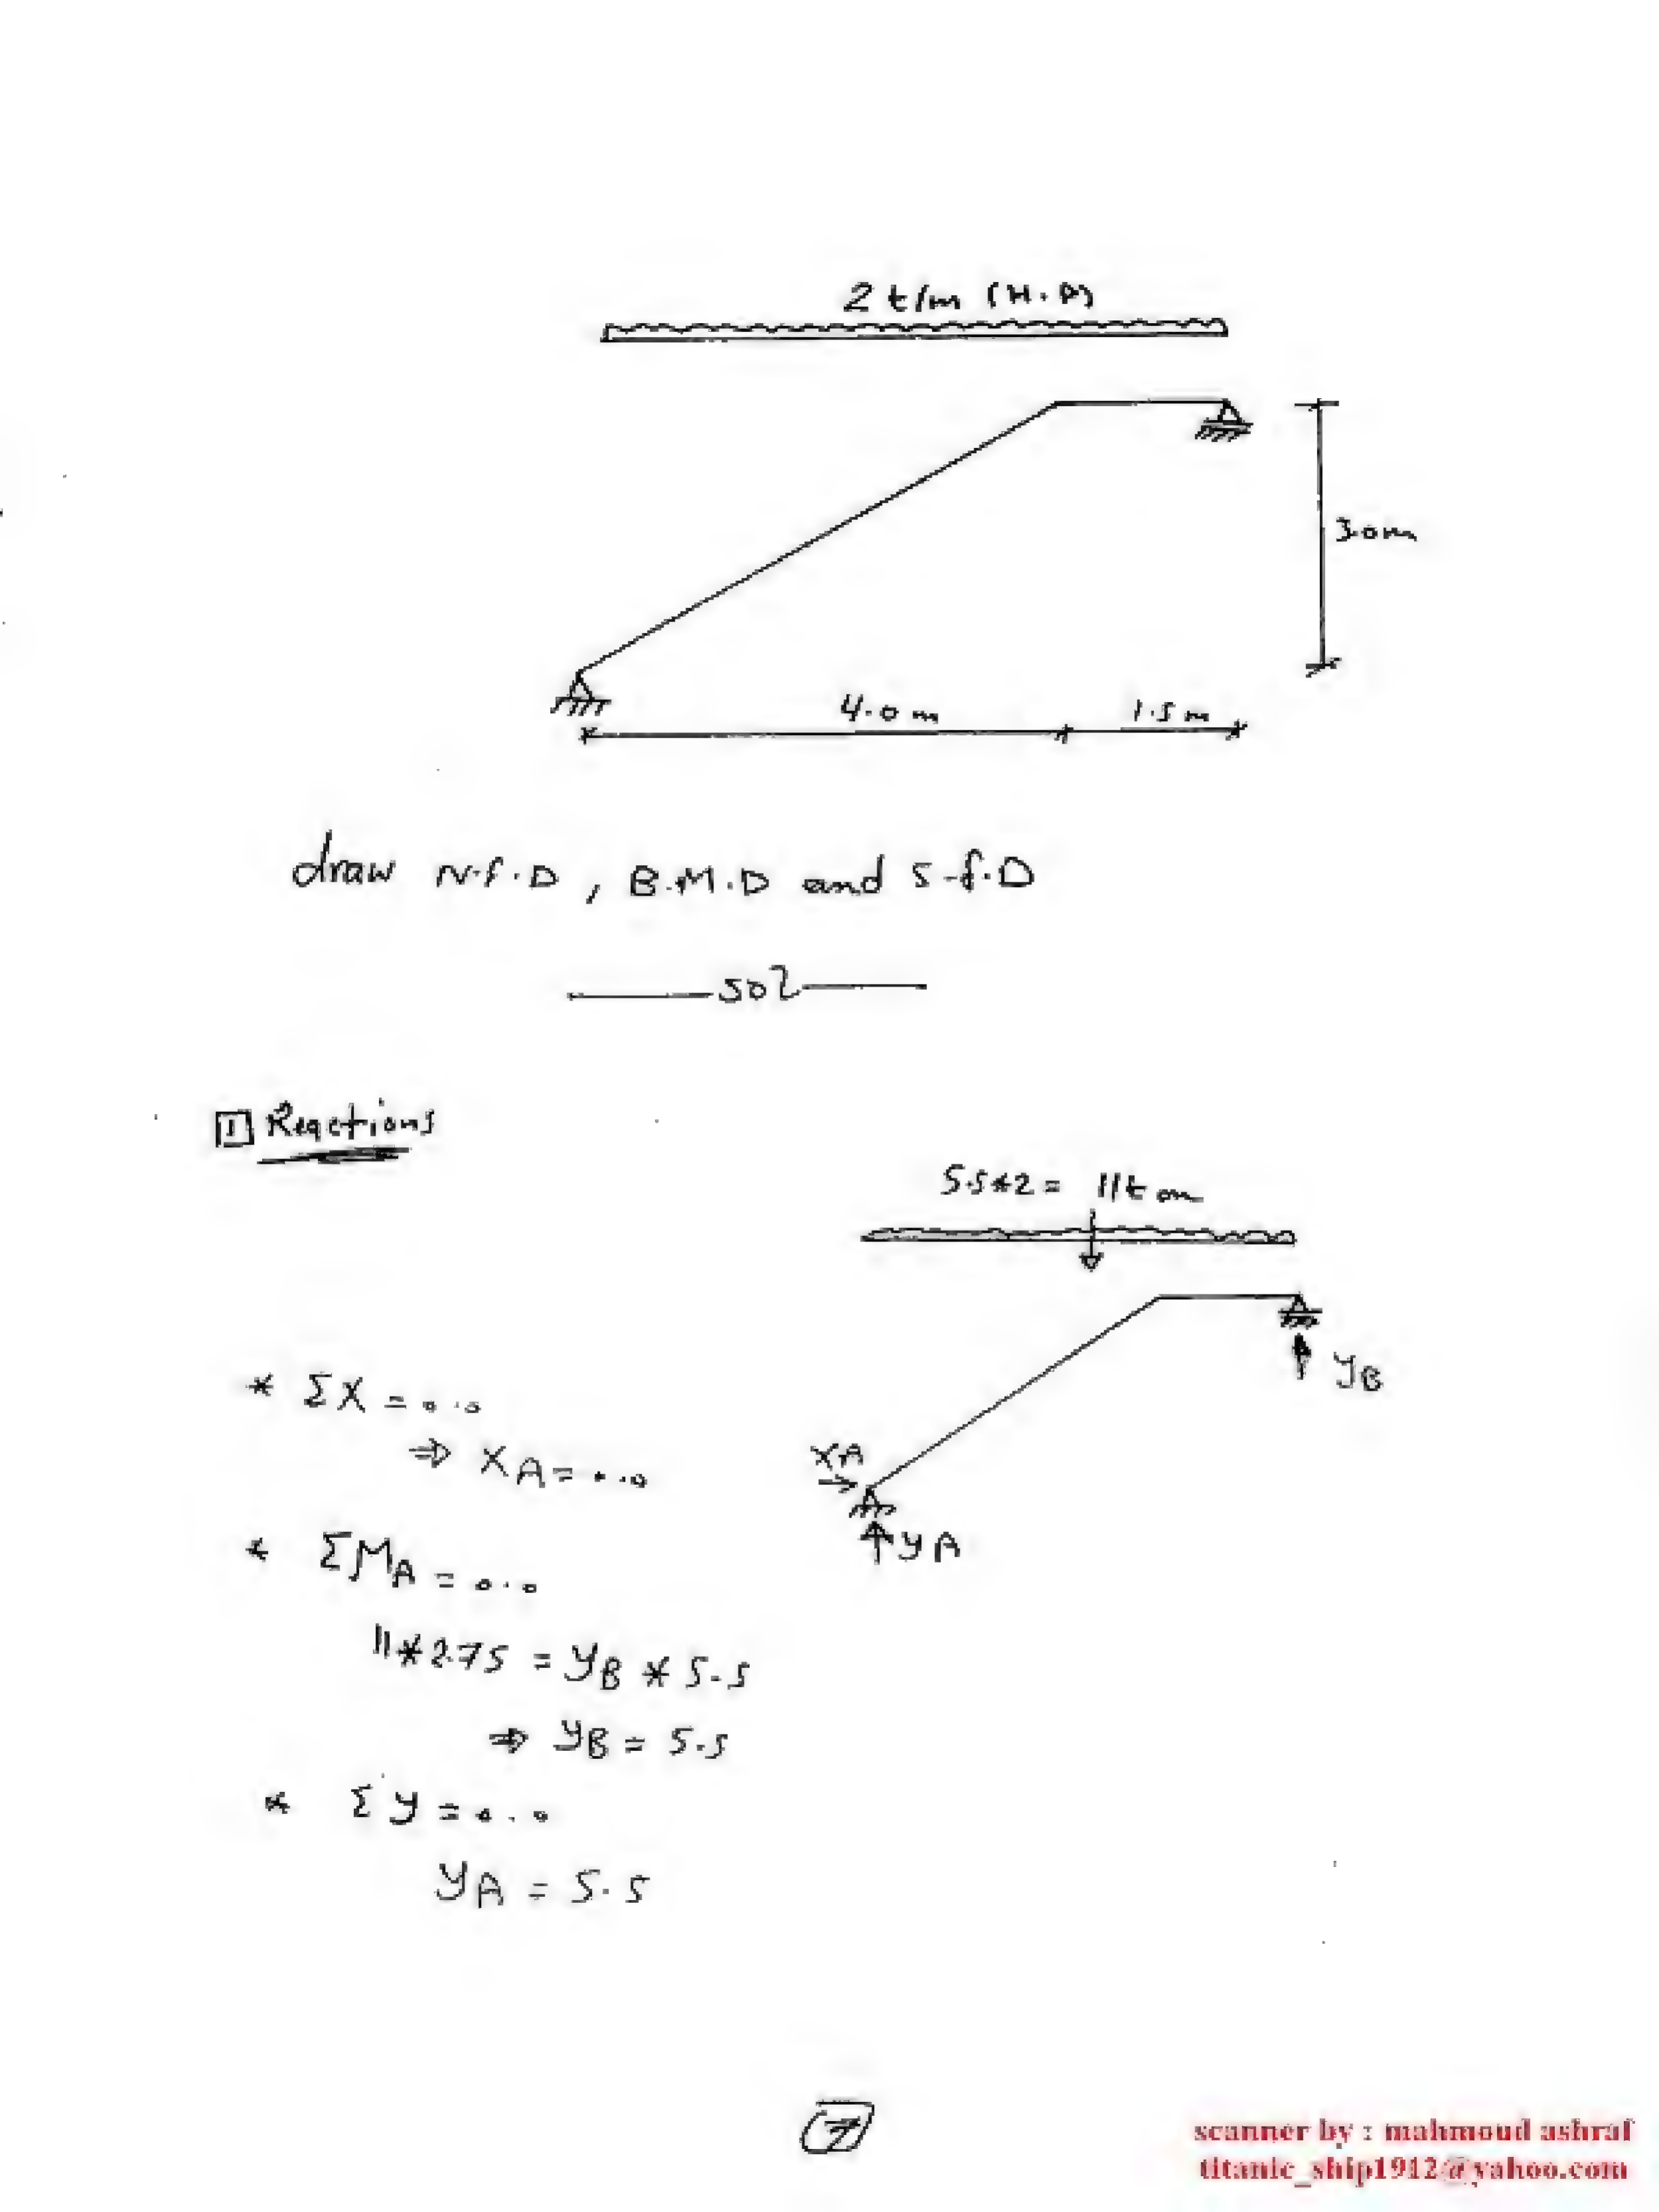 2 t/m (H.P)
3.0m
4.0 m 1.5 m
draw N.f.D, B.M.D and S.f.D
sol
1 Reactions
5.5*2 = 11t
* ΣX = 0.0
⇒ XA = 0.0
XA
YA
YB
* ΣMA = 0.0
11*2.75 = YB * 5.5
⇒ YB = 5.5
* Σy = 0.0
YA = 5.5
7
scanner by : mahmoud ashraf
titanic_ship1912@yahoo.com